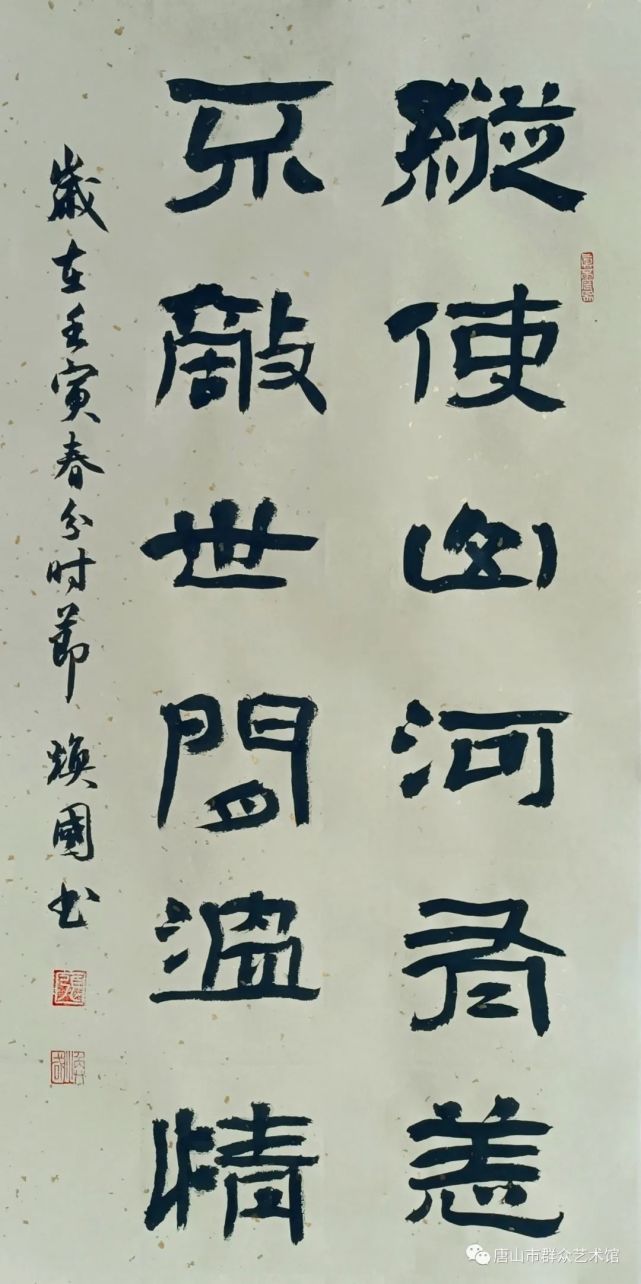 縱使山河有恙
不敵世閒溫情
歲在壬寅春分时節 煥國书
唐山市群众艺术馆